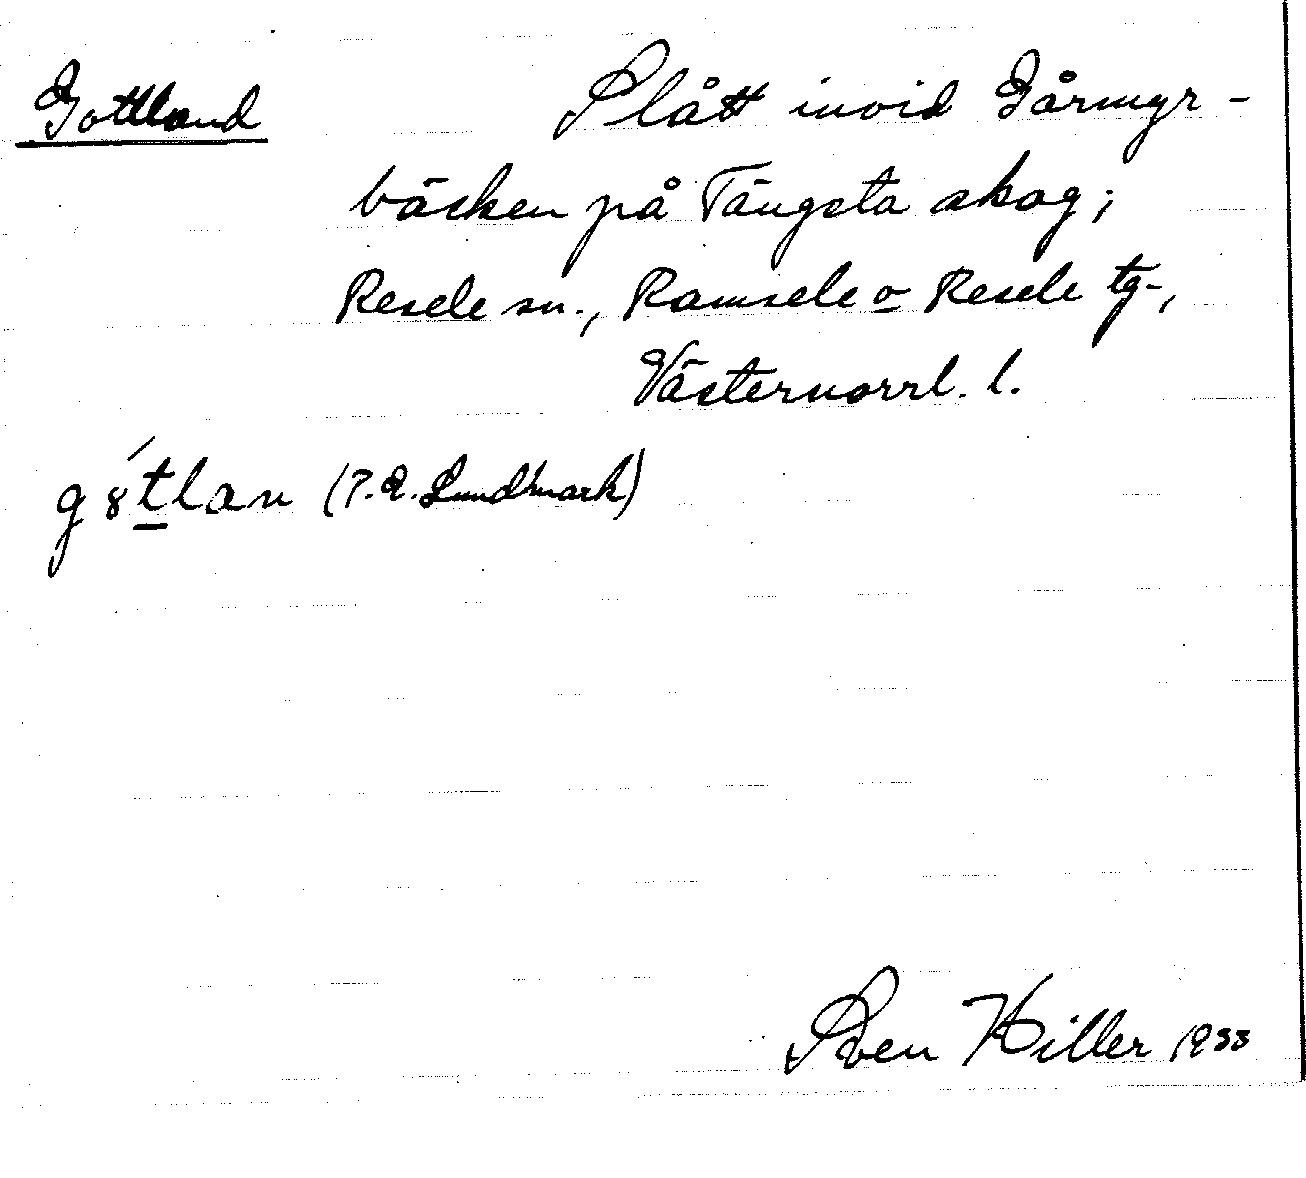 Gottland Slått invid Gårmyr-
bäcken på Tängsta skog;
Resele sn., Ramsele o Resele tg-,
Västernorrl. l.
g8́tlan (P.E. Lundmark)
Sven Hiller 1933